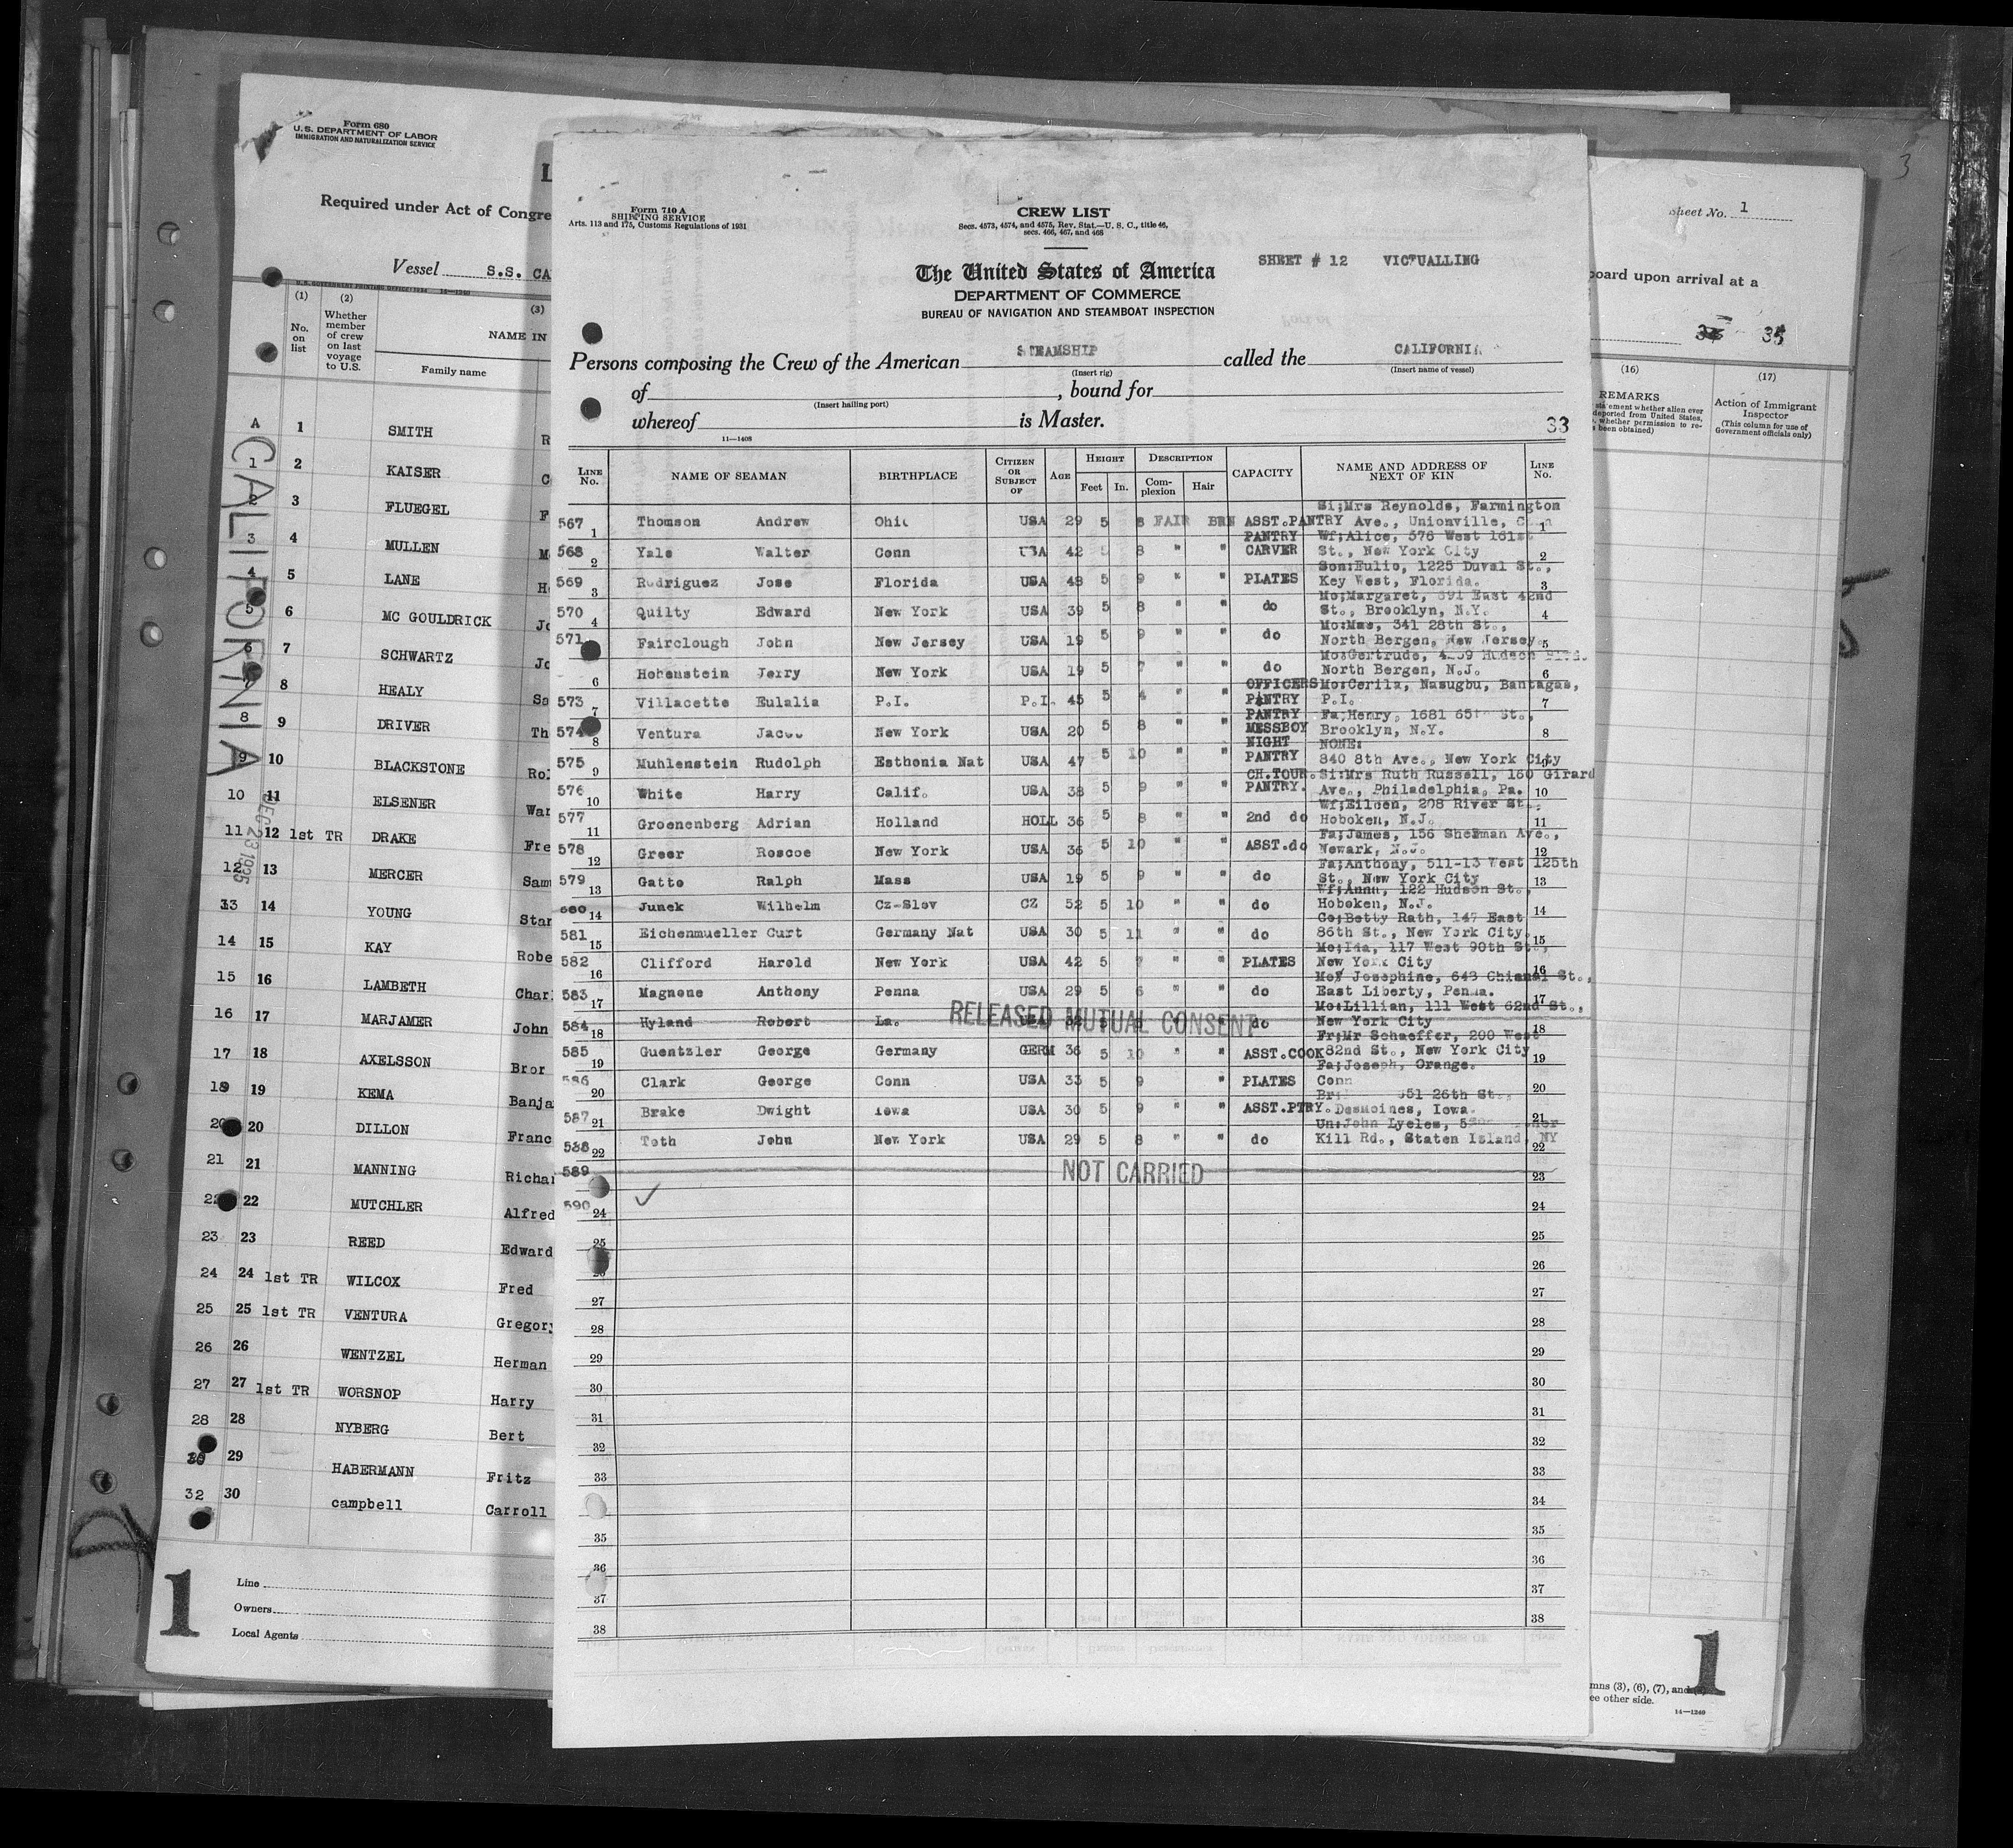 Form 680
U. S. DEPARTMENT OF LABOR
IMMIGRATION AND NATURALIZATION SERVICE
Required under Act of Congre
Vessel S.S. CA
U.S. GOVERNMENT PRINTING OFFICE: 1934 14—1240
(1) (2) (3)
No. on list
Whether member of crew on last voyage to U.S.
NAME IN
Family name
CALIFORNIA
DEC 23 1935
A 1 SMITH R
1 2 KAISER C
2 3 FLUEGEL F
3 4 MULLEN M
4 5 LANE H
5 6 MC GOULDRICK Jo
6 7 SCHWARTZ Jo
8 HEALY So
8 9 DRIVER Th
9 10 BLACKSTONE Rol
10 11 ELSENER War
11 12 1st TR DRAKE Fre
12 13 MERCER Sam
13 14 YOUNG Star
14 15 KAY Robe
15 16 LAMBETH Charl
16 17 MARJAMER John
17 18 AXELSSON Bror
18 19 KEMA Banja
20 20 DILLON Franc
21 21 MANNING Richar
22 22 MUTCHLER Alfred
23 23 REED Edward
24 24 1st TR WILCOX Fred
25 25 1st TR VENTURA Gregory
26 26 WENTZEL Herman
27 27 1st TR WORSNOP Harry
28 28 NYBERG Bert
29 HABERMANN Fritz
32 30 campbell Carroll
1
Line
Owners
Local Agents
Form 710 A
SHIPPING SERVICE
Arts. 113 and 175, Customs Regulations of 1931
CREW LIST
Secs. 4573, 4574, and 4575, Rev. Stat.—U. S. C., title 46,
secs. 466, 467, and 468
The United States of America
SHEET # 12 VICTUALLING
DEPARTMENT OF COMMERCE
BUREAU OF NAVIGATION AND STEAMBOAT INSPECTION
Persons composing the Crew of the American STEAMSHIP called the CALIFORNIA
(Insert rig) (Insert name of vessel)
of , bound for
(Insert hailing port)
whereof is Master.
11—1408
33
LINE No. NAME OF SEAMAN BIRTHPLACE CITIZEN OR SUBJECT OF AGE HEIGHT Feet In. DESCRIPTION Complexion Hair CAPACITY NAME AND ADDRESS OF NEXT OF KIN LINE No.
Si;Mrs Reynolds, Farmington
567 1 Thomson Andrew Ohio USA 29 5 8 FAIR BRN ASST.PANTRY Ave., Unionville, Conn 1
PANTRY Wf;Alice, 576 West 161st
568 2 Yale Walter Conn USA 42 5 8 " " CARVER St., New York City 2
Son:Eulio, 1225 Duval St.,
569 3 Rodriguez Jose Florida USA 48 5 9 " " PLATES Key West, Florida. 3
Mo;Margaret, 691 East 42nd
570 4 Quilty Edward New York USA 39 5 8 " " do St., Brooklyn, N.Y. 4
Mo:Mae, 341 28th St.,
571 Fairclough John New Jersey USA 19 5 9 " " do North Bergen, New Jersey. 5
Mo:Gertrude, Hudson Blvd.
6 Hohenstein Jerry New York USA 19 5 7 " " do North Bergen, N.J. 6
OFFICERS Mo:Cerila, Nasugbu, Bantagas,
573 7 Villacette Eulalia P.I. P.I. 45 5 4 " " PANTRY P.I. 7
PANTRY Fa;Henry, 1681 65th St.,
574 8 Ventura Jacob New York USA 20 5 8 " " MESSBOY Brooklyn, N.Y. 8
NIGHT NONE:
575 9 Muhlenstein Rudolph Esthonia Nat USA 47 5 10 " " PANTRY 840 8th Ave., New York City 9
CH.TOUR. Si:Mrs Ruth Russell, 160 Girard
576 10 White Harry Calif. USA 38 5 9 " " PANTRY. Ave., Philadelphia, Pa. 10
Wf;Eileen, 208 River St.,
577 11 Groenenberg Adrian Holland HOLL 36 5 8 " " 2nd do Hoboken, N.J. 11
Fa;James, 156 Sherman Ave.,
578 12 Greer Roscoe New York USA 36 5 10 " " ASST.do Newark, N.J. 12
Fa;Anthony, 511-13 West 125th
579 13 Gatto Ralph Mass USA 19 5 9 " " do St., New York City 13
Wf;Anna, 122 Hudson St.,
580 14 Junek Wilhelm Cz-Slov CZ 52 5 10 " " do Hoboken, N.J. 14
Co;Betty Rath, 147 East
581 15 Eichenmueller Curt Germany Nat USA 30 5 11 " " do 86th St., New York City. 15
Mo;Ida, 117 West 90th St.,
582 16 Clifford Harold New York USA 42 5 7 " " PLATES New York City 16
Mo; Josephine, 643 St.,
583 17 Magnone Anthony Penna USA 29 5 6 " " do East Liberty, Penna. 17
Mo:Lillian, 111 West 62nd St.,
584 18 Hyland Robert La. USA 5 do New York City 18
RELEASED MUTUAL CONSENT
Fr;Mr Schaeffer, 200 West
585 19 Guentzler George Germany GERM 36 5 10 " " ASST.COOK 82nd St., New York City 19
Fa;Joseph, Orange.
586 20 Clark George Conn USA 33 5 9 " PLATES Conn 20
951 26th St.,
587 21 Brake Dwight Iowa USA 30 5 9 " " ASST.PTRY. DesMoines, Iowa. 21
Un:John Lyeles,
588 22 Toth John New York USA 29 5 8 " " do Kill Rd., Staten Island, NY 22
589 NOT CARRIED 23
590 24 ✓ 24
25 25
26 26
27 27
28 28
29 29
30 30
31 31
32 32
33 33
34
35 35
36 36
37 37
38 38
3
Sheet No. 1
board upon arrival at a
35
(16) (17)
REMARKS
statement whether alien ever
deported from United States,
whether permission to re-
been obtained)
Action of Immigrant
Inspector
(This column for use of
Government officials only)
1
mns (3), (6), (7), and
ee other side.
14—1240